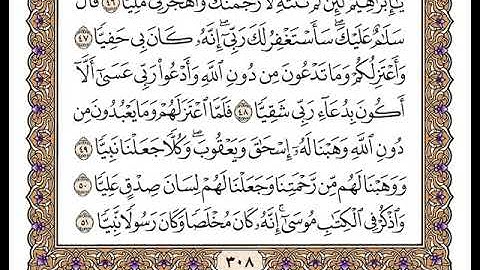 يَٰٓإِبْرَٰهِيمُ لَئِن لَّمْ تَنتَهِ لَأَرْجُمَنَّكَ وَٱهْجُرْنِى مَلِيًّا ٤٦ قَالَ
سَلَٰمٌ عَلَيْكَ سَأَسْتَغْفِرُ لَكَ رَبِّىٓ إِنَّهُۥ كَانَ بِى حَفِيًّا ٤٧
وَأَعْتَزِلُكُمْ وَمَا تَدْعُونَ مِن دُونِ ٱللَّهِ وَأَدْعُوا۟ رَبِّى عَسَىٰٓ أَلَّآ
أَكُونَ بِدُعَآءِ رَبِّى شَقِيًّا ٤٨ فَلَمَّا ٱعْتَزَلَهُمْ وَمَا يَعْبُدُونَ مِن
دُونِ ٱللَّهِ وَهَبْنَا لَهُۥٓ إِسْحَٰقَ وَيَعْقُوبَ وَكُلًّا جَعَلْنَا نَبِيًّا ٤٩
وَوَهَبْنَا لَهُم مِّن رَّحْمَتِنَا وَجَعَلْنَا لَهُمْ لِسَانَ صِدْقٍ عَلِيًّا ٥٠
وَٱذْكُرْ فِى ٱلْكِتَٰبِ مُوسَىٰٓ إِنَّهُۥ كَانَ مُخْلَصًا وَكَانَ رَسُولًا نَّبِيًّا ٥١
٣٠٨